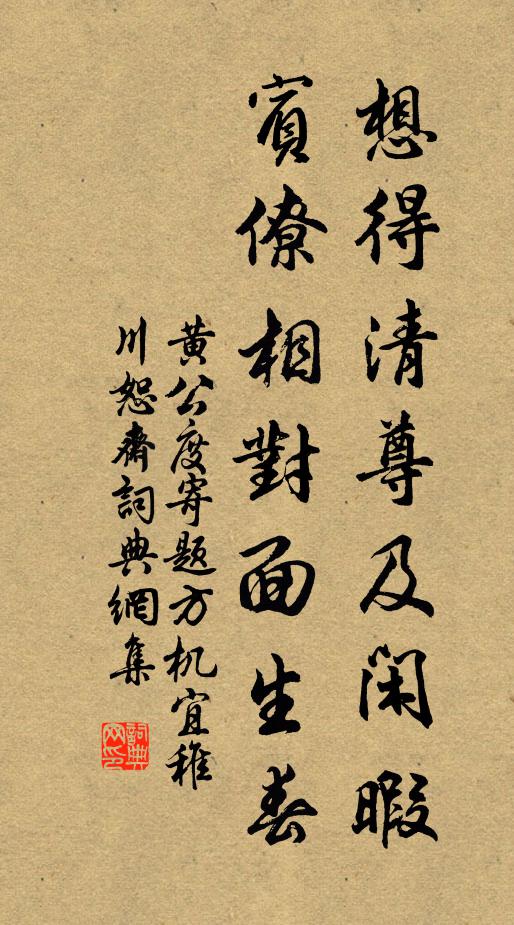 想得清尊及閑暇
賓僚相對面生春
黄公度寄题方机宜稚
川恕齋詞典網集
詞典网印